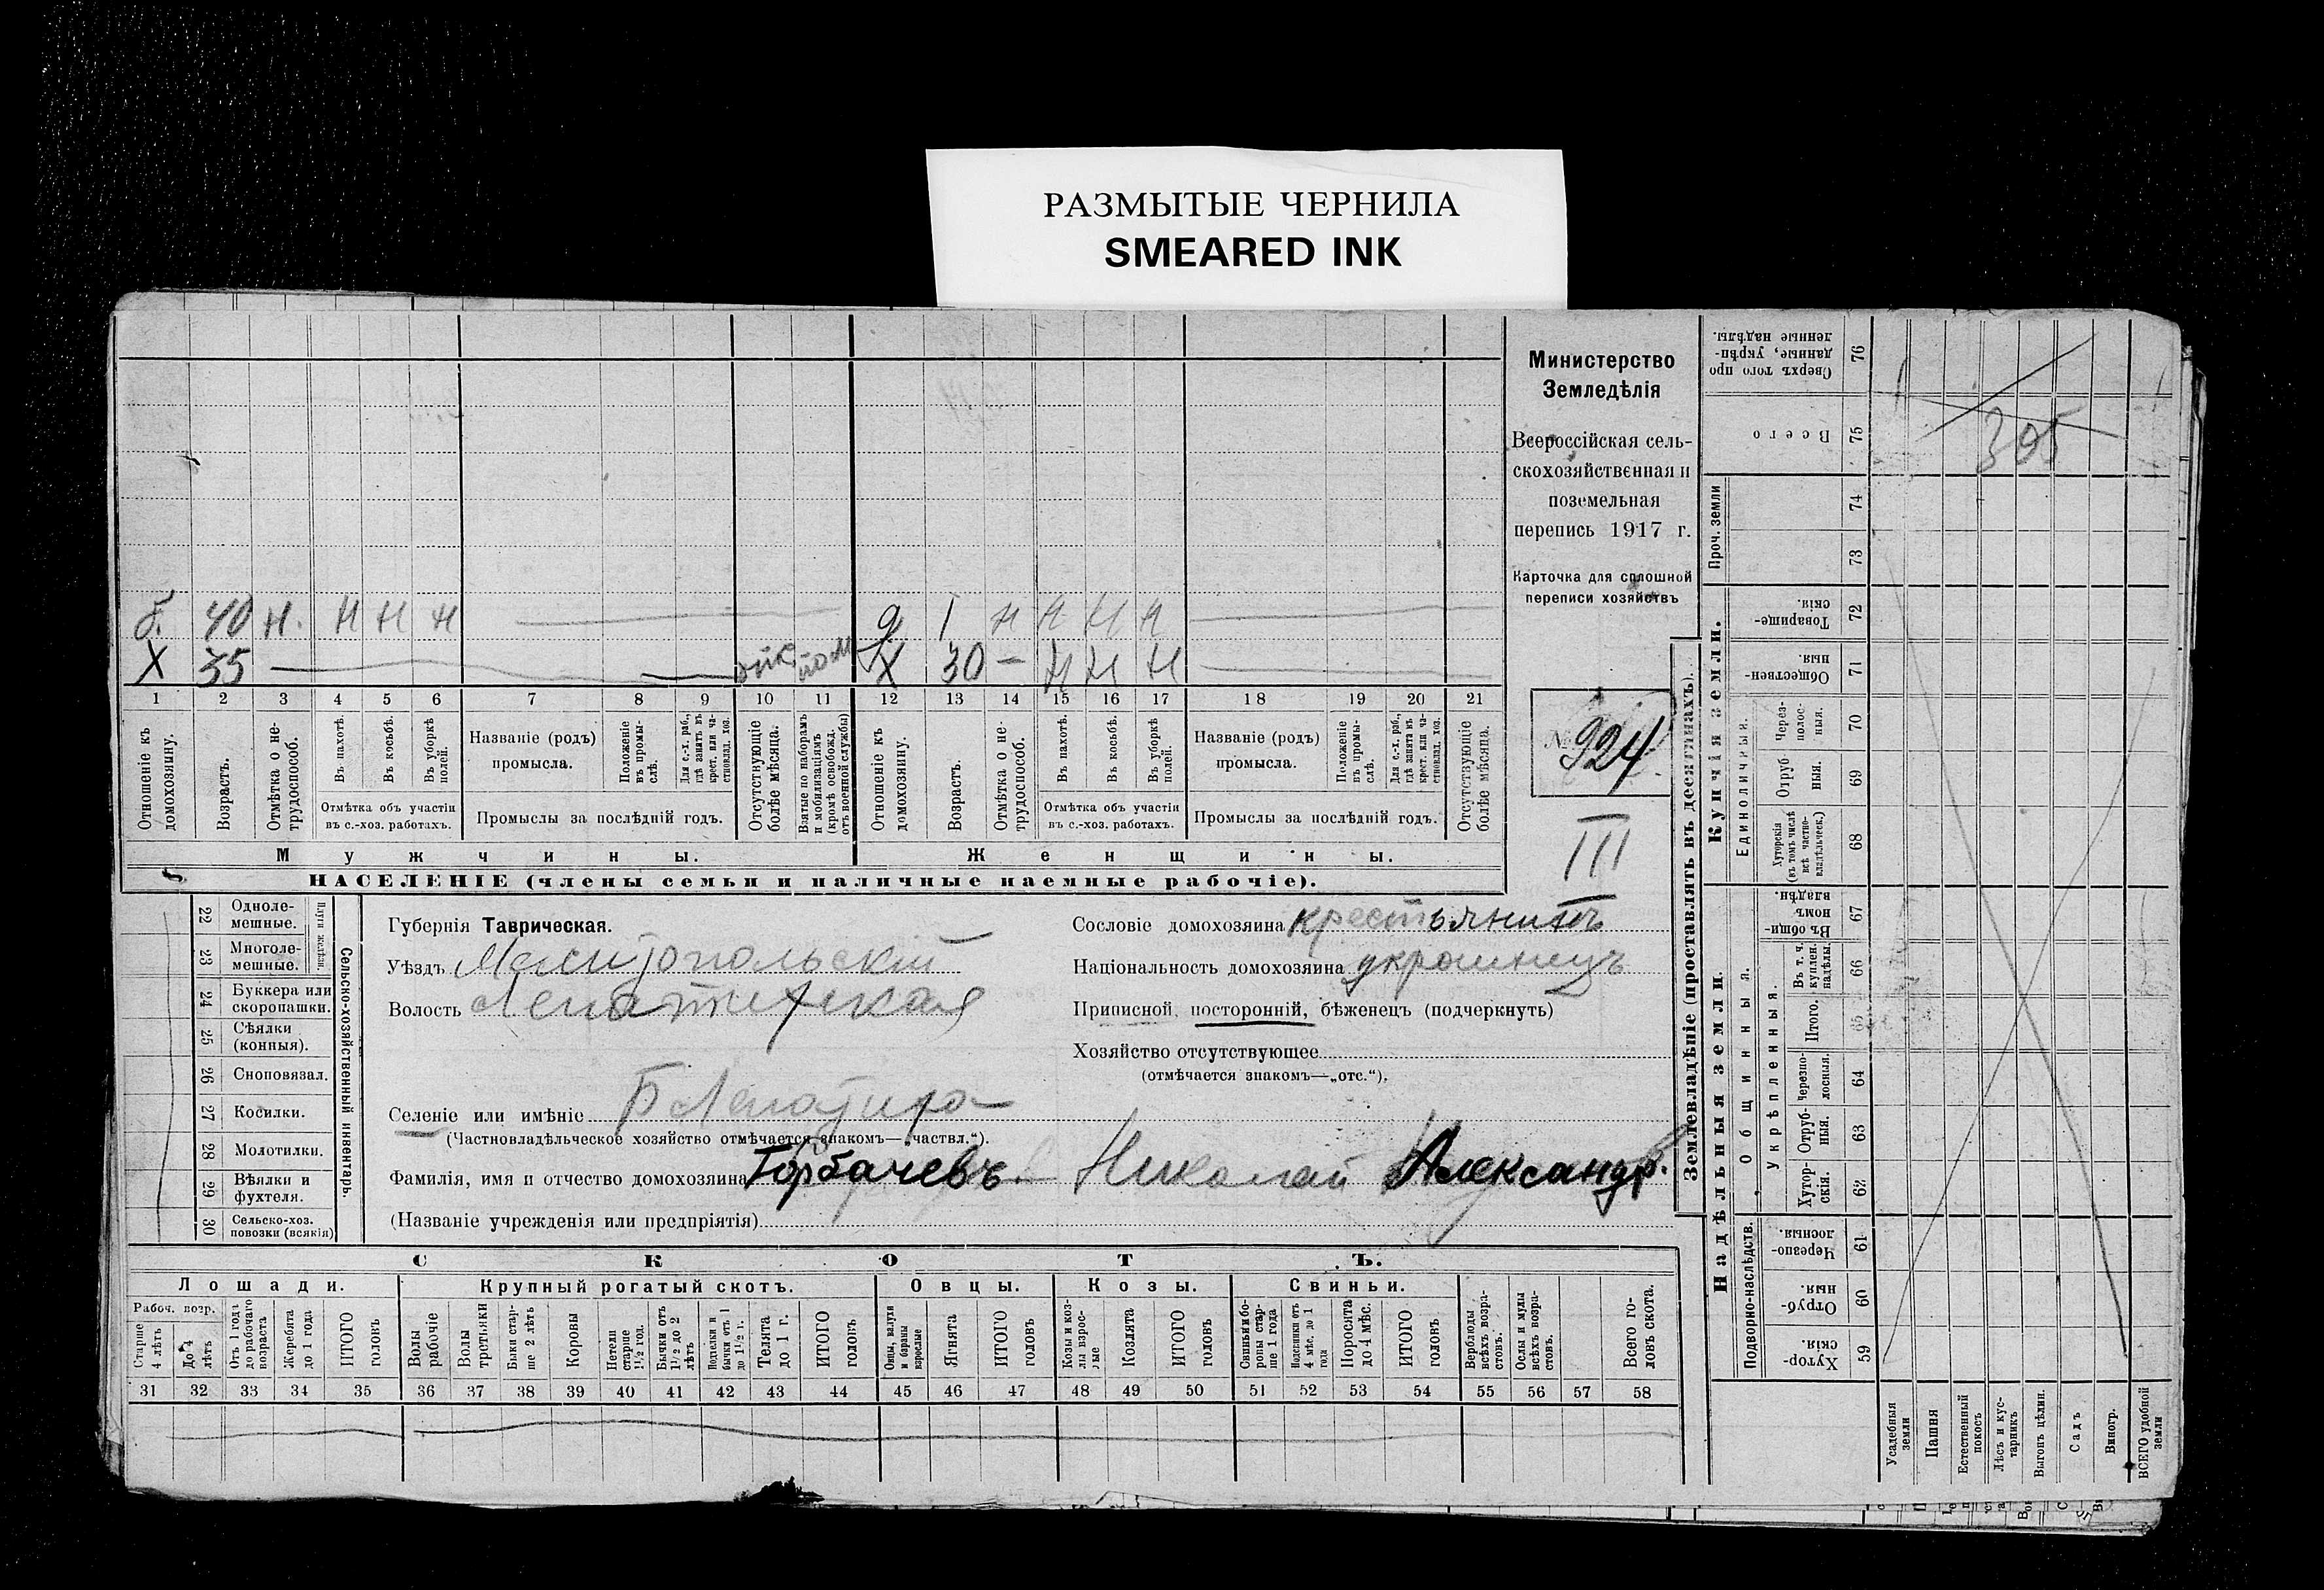 РАЗМЫТЫЕ ЧЕРНИЛА
SMEARED INK
Министерство
Земледѣлія
Всероссійская сель-
скохозяйственная и
поземельная
перепись 1917 г.
Карточка для сплошной
переписи хозяйствъ
№ 924
III
б. 40 н. н н н
д 1 н н н н
Х 35
Х 30 — н н н
1 2 3 4 5 6 7 8 9 10 11 12 13 14 15 16 17 18 19 20 21
Отношеніе къ домохозяину.
Возрастъ.
Отмѣтка о не-трудоспособ.
Въ пахотѣ.
Въ косьбѣ.
Въ уборкѣ полей.
Отмѣтка объ участіи
въ с.-хоз. работахъ.
Названіе (родъ)
промысла.
Положеніе въ промы-слѣ.
Для с.-х. раб., гдѣ занятъ въ крест. или ча-стновлад. хоз.
Промыслы за послѣдній годъ.
Отсутствующіе болѣе мѣсяца.
Взятые по наборамъ и мобилизаціямъ (кромѣ освобожд. отъ военной службы)
Отношеніе къ домохозяину.
Возрастъ.
Отмѣтка о не-трудоспособ.
Въ пахотѣ.
Въ косьбѣ.
Въ уборкѣ полей.
Отмѣтка объ участіи
въ с.-хоз. работахъ.
Названіе (родъ)
промысла.
Положеніе въ промы-слѣ.
Для с.-х. раб., гдѣ занятъ въ крест. или ча-стновлад. хоз.
Промыслы за послѣдній годъ.
Отсутствующіе болѣе мѣсяца.
Мужчины.
Женщины.
НАСЕЛЕНІЕ (члены семьи и наличные наемные рабочіе).
Сельско-хозяйственный инвентарь.
Плуги желѣзн.
22 Одноле-мешные.
23 Многоле-мешные.
24 Буккера или скоропашки.
25 Сѣялки (конныя).
26 Сноповязал.
27 Косилки.
28 Молотилки.
29 Вѣялки и фухтеля.
30 Сельско-хоз. повозки (всякія)
Губернія Таврическая.
Уѣздъ Мелитопольскій
Волость Лепатихская
Селеніе или имѣніе Б Лепатиха
(Частновладѣльческое хозяйство отмѣчается знакомъ—„частвл.“).
Фамилія, имя и отчество домохозяина Горбачевъ. Николай Александр.
(Названіе учрежденія или предпріятія)
Сословіе домохозяина крестьянинъ
Національность домохозяина украинецъ
Приписной, посторонній, бѣженецъ (подчеркнуть)
Хозяйство отсутствующее
(отмѣчается знакомъ—„отс.“).
СКОТЪ.
Лошади.
Крупный рогатый скотъ.
Овцы.
Козы.
Свиньи.
Рабоч. возр.
Старше 4 лѣтъ
До 4 лѣтъ
Отъ 1 года до рабочаго возраста
Жеребята до 1 года
ИТОГО головъ
Волы рабочіе
Волы третьяки
Быки стар-ше 2 лѣтъ
Коровы
Нетели старше 1½ год.
Бычки отъ 1½ до 2 лѣтъ
Нетелки и бычки отъ 1 до 1½ г.
Телята до 1 г.
ИТОГО головъ
Овцы, валухи и бараны взрослые
Ягнята
ИТОГО головъ
Козы и коз-лы взрос-лые
Козлята
ИТОГО головъ
Свиньи и бо-ровы стар-ше 1 года
Подсвинки отъ 4 мѣс. до 1 года
Поросята до 4 мѣс.
ИТОГО головъ
Верблюды всѣхъ возра-стовъ.
Ослы и мулы всѣхъ возра-стовъ.
Всего го-ловъ скота.
31 32 33 34 35 36 37 38 39 40 41 42 43 44 45 46 47 48 49 50 51 52 53 54 55 56 57 58
Землевладѣніе (проставлять въ десятинахъ).
Надѣльныя земли.
Купчія земли.
Проч. земли
Подворно-наслѣдств.
Общинныя.
Укрѣпленныя.
Единоличныя.
Сверхъ того про-данные, укрѣп-ленные надѣлы. 76
Всего 75
74
73
Товарище-скія. 72
Обществен-ныя. 71
Через-полос-ныя. 70
Отруб ныя. 69
Хуторскія (въ томъ числѣ всѣ частно-владѣльческ.) 68
Въ общи-номъ владѣн. 67
Въ т. ч. куплен. надѣлы. 66
Итого. 65
Черезпо-лосныя. 64
Отруб-ныя. 63
Хутор-скія. 62
Черезпо-лосныя. 61
Отруб-ныя. 60
Хутор-скія. 59
Усадебныя земли
Пашня
Естественный покосъ
Лѣсъ и кус-тарникъ
Выгонъ цѣлин.
Садъ
Виногр.
ВСЕГО удобной земли